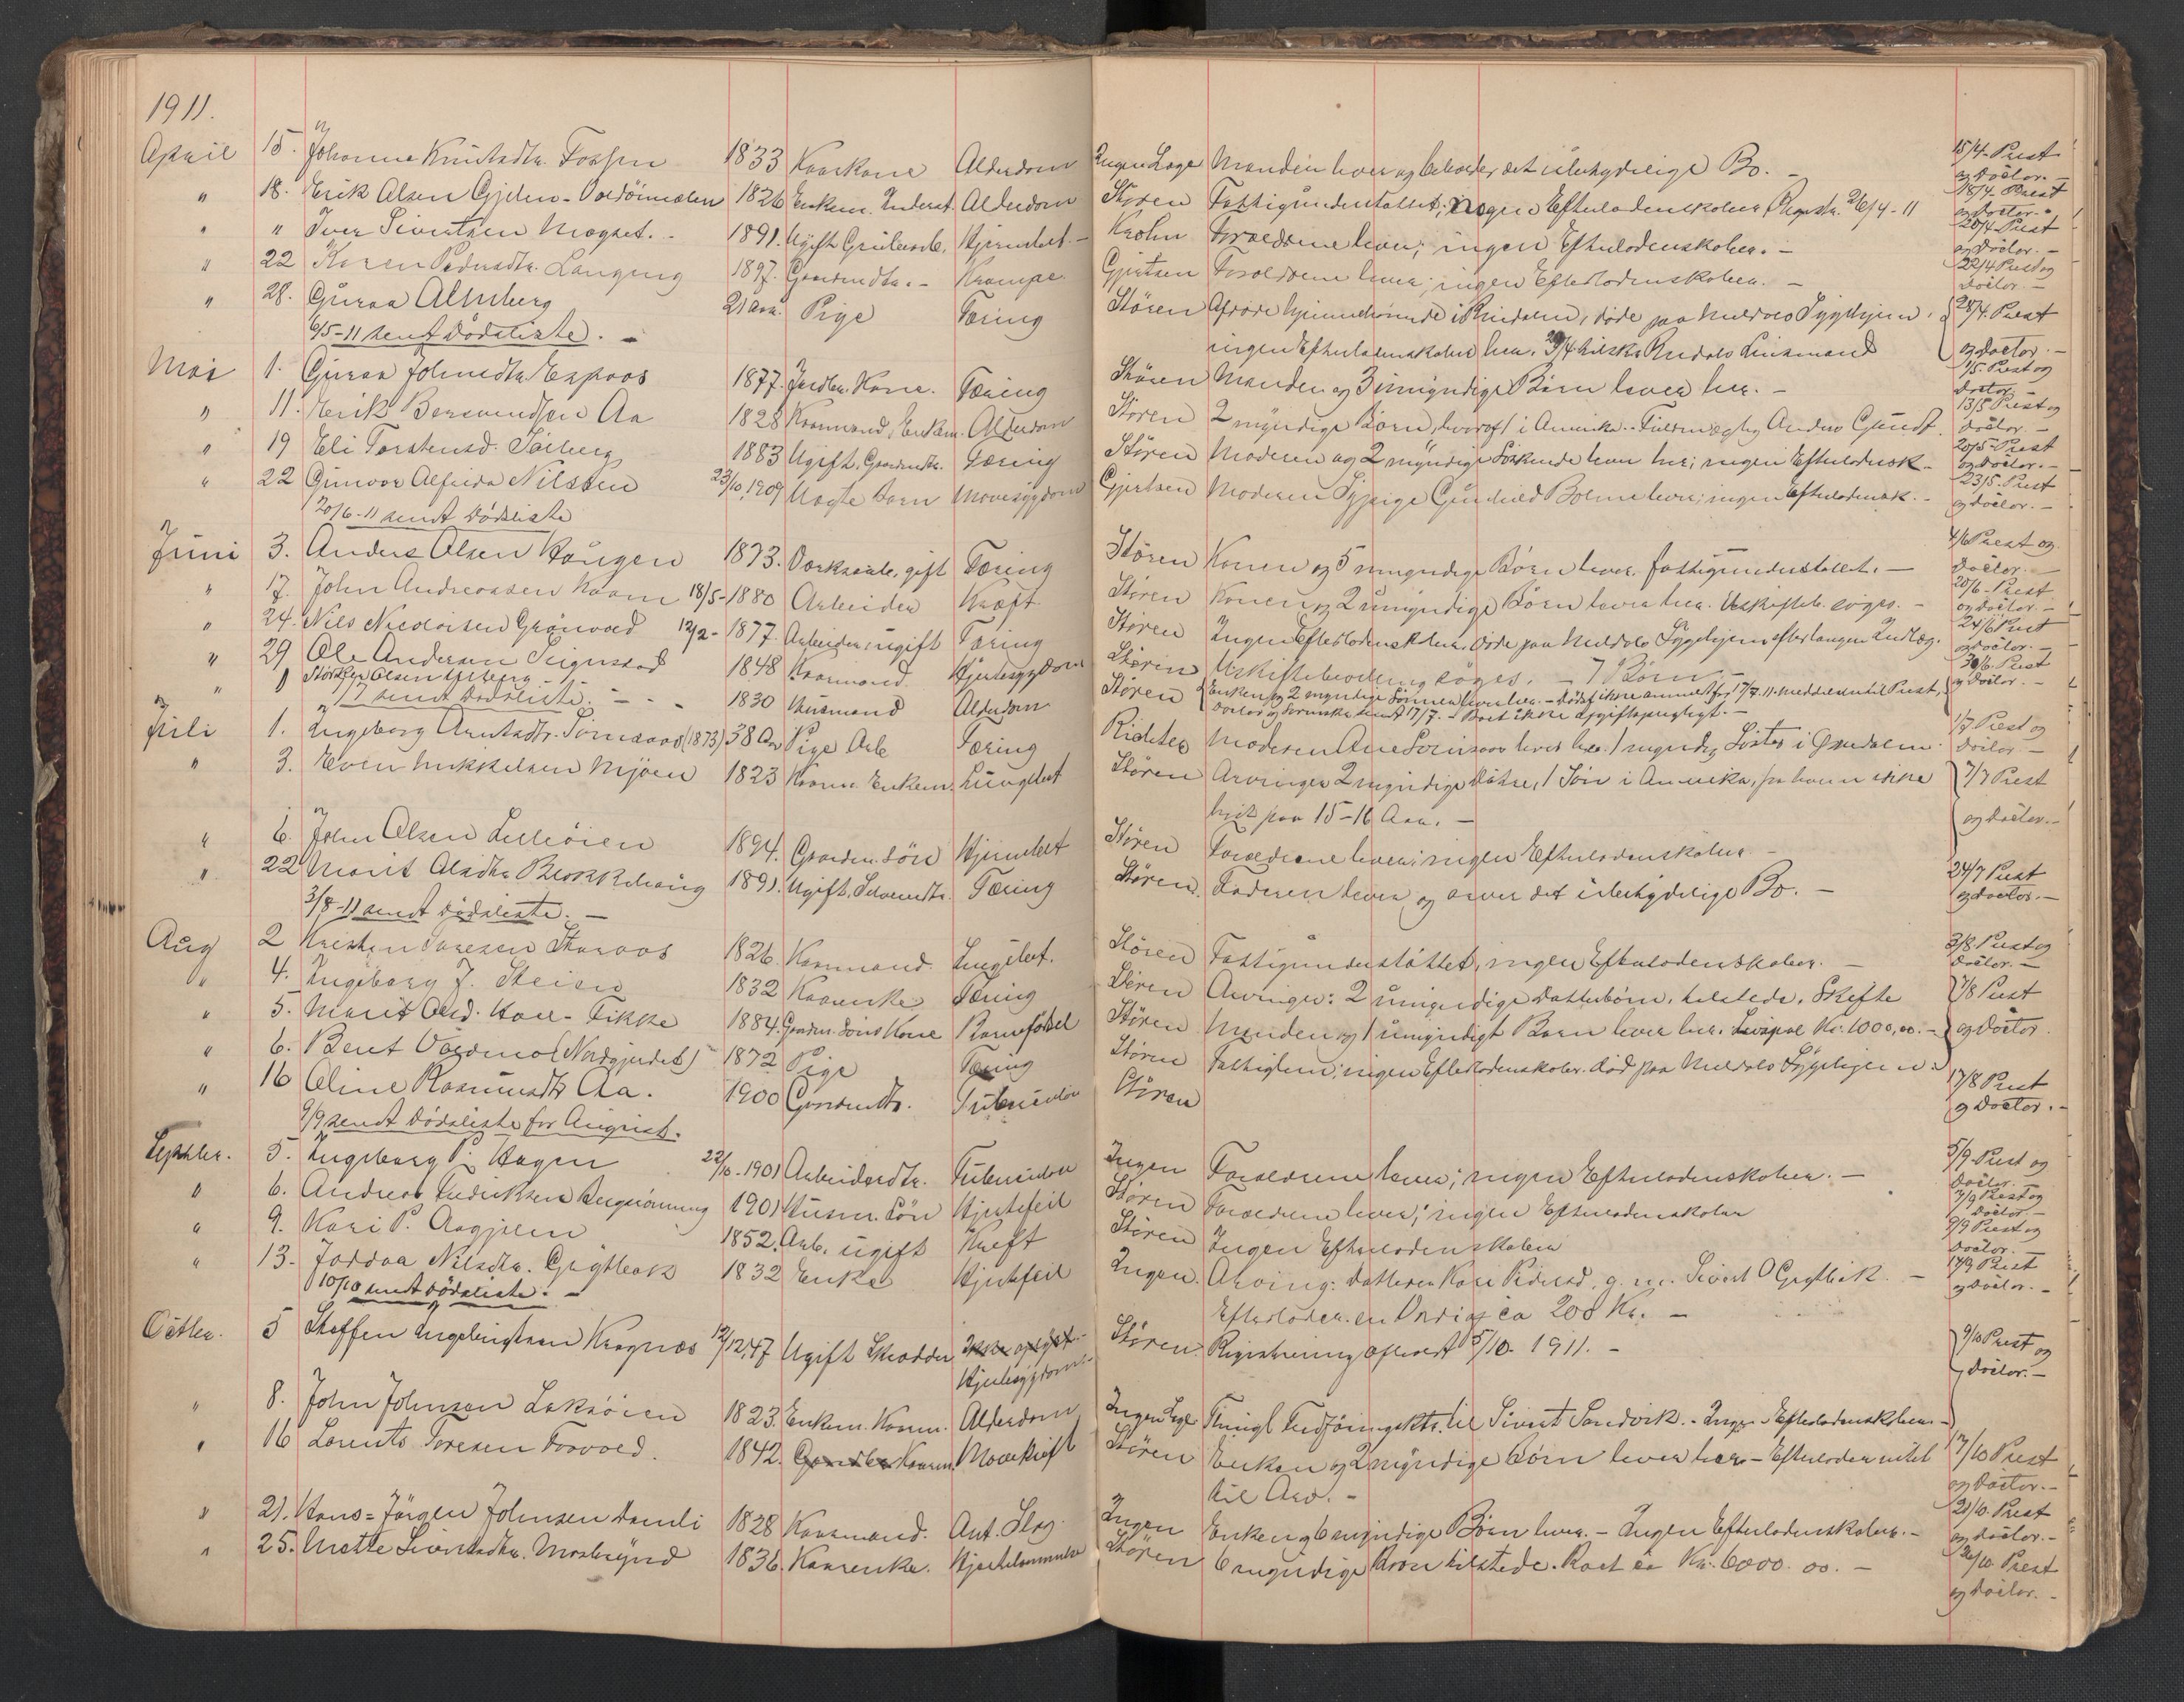 1911.
April 15. Johanne Knutsdtr. Fossen 1833 Kaarkone Alderdom Ingen Læge Manden lever og beholder det ubetydelige Bo. - 15/4 Prest og Doctor. -
" 18. Erik Olsen 1826 Enkem. Underst. Alderdom Støren Fattigunderstøttet, ingen Efterladenskaber. Registr. 26/4-11 18/4 Prest og Doctor. -
" " Iver Sivertsen Magnet. - 1891. Ugift Grubearb. Hjernebet. - Krohn Forældrene lever; ingen Efterladenskaber. - 20/4 Prest og Doctor. -
" 22 Karen Pedersdtr. Langeng 1897. Gaardmdtr. - Krampe Gjertsen Forældrene lever; ingen Efterladenskaber. - 22/4 Prest og Doctor. -
" 28. Guraa Almberg 21 Aar. Pige Tæring Støren Afdøde hjemmehørende i Rindalen, døde paa Meldals Sygehjem. 28/4. Prest
6/5-11 sendt Dødsliste. - ingen Efterladenskaber her. 29/4 tilskr. Rindals Lensmand og Doctor. -
Mai 1. Guraa Johnsdtr. Espaas 1877. Jordbr. Kone. Tæring Støren Manden og 3 umyndige Børn lever her. - 1/5. Prest og Doctor -
" 11. Erik Bersvendsen Aa 1828 Kaarmand, Enkem. Alderdom Støren 2 myndige Børn, hvoraf 1 i Amerika. - Anders 13/5 Prest og Doctor. -
" 19 Eli Torstensd. Solberg 1883 Ugift. Gaardmdtr. Tæring Støren Moderen og 2 myndige Søskende lever her; ingen Efterladensk. - 20/5 Prest og Doctor. -
" 22 Gunvor Alfrida Nilssen 23/10 1909 Uægte Barn Mavesygdom Gjertsen Moderen Pige Gunhild Bolme lever; ingen Efterladensk. - 23/5. Prest og Doctor. -
20/6-11 sendt Dødsliste
Juni 3. Anders Olsen Haugen 1873. Værksarb., gift Tæring Støren Konen og 5 umyndige Børn lever. Fattigunderstøttet. - 4/6 Prest og Doctor. -
" 17. John Andreassen Kaam 18/5-1880 Arbeider Kræft Støren Konen og 2 umyndige Børn lever her. Uskiftetb. søges. - 20/6. Prest og Doctor. -
" 24. Nils Nicolaisen Grønvold 12/2-1877. Arbeider, ugift Tæring Støren Ingen Efterladensk. her. Døde paa Meldals Sygehjem efter langen Indlæg. 24/6 Prest og Doctor. -
" 29 Ole Andersen 1848 Kaarmand. Hjertesygdom Støren Uskiftebevilling søges. - 7 Børn. - 30/6. Prest og Doctor. -
" " Olsen 1830 Husmand Alderdom Støren Enken og 2 myndige Sønner lever her. - Dødsf. ikke anmeldt før 17/7. 11. Meddelelse til Prest,
7/7 sendt Dødsliste. - Doctor og sendt 17/7. - Boet ikke afgiftspligtigt. -
Juli 1. Ingeborg Arntsdtr. (1873) 38 Aar Pige Arb. Tæring Richter Moderen Ane lever her. 1 myndig Søster i 1/7 Prest og Doctor. -
" 3. Even Mikkelsen Mjøen 1823 Kaarm. Enkem. Lungebet Støren Arvinger 2 myndige Døtre, 1 Søn i Amerika, fra ham ikke 7/7 Prest
hørt paa 15-16 Aar. - og Doctor. -
" 6. John Olsen Lilleøien 1894. Gaardm. Søn Hjernebet Støren Forældrene lever; ingen Efterladenskaber -
" 22 Marit Olsdtr. Blokkehaug 1891. Ugift, Tæring Støren. Faderen lever og arver det ubetydelige Bo. - 24/7 Prest og Doctor. -
3/8-11 sendt Dødsliste. -
Aug 2 Kristen Toresen 1826. Kaarmand. Lungebet. Støren Fattigunderstøttet, ingen Efterladenskaber. - 3/8 Prest og Doctor. -
" 4. Ingeborg J. Steien 1832 Kaarenke Tæring Støren Arvinger: 2 umyndige Datterbørn, tilstede. Skifte 7/8 Prest
" 5. Marit Olsd. Hoel-Fikke 1884. Gaardm. Søns Kone Barnefødsel Støren Manden og 1 umyndigt Barn lever her. Livspol. Kr. 1000,00. - og Doctor.
" 6. Beret Værmo (Nordgjerdet) 1872 Pige Tæring Støren Fattiglem; ingen Efterladenskaber. død paa Meldals Sygehjem. -
" 16 Oline Rasmusdtr. Aa. 1900 Gaardmdtr. Tuberculose Støren 17/8 Prest og Doctor. -
9/9 sendt Dødsliste for August.
Septbr. 5. Ingeborg P. Hagen 22/10-1901 Arbeidersdtr. Tuberculose Ingen Forældrene lever; ingen Efterladenskaber. - 5/9 Prest og Doctor. -
" 6. Andreas Fredriksen 1901 Husm. Søn Hjertefeil Støren Forældrene lever; ingen Efterladenskaber 7/9 Prest og Doctor. -
" 9. Kari P. Aagjelen 1852. Arb. ugift Kræft Støren Ingen Efterladenskaber 9/9 Prest og Doctor. -
" 13. Jordaa Nilsdtr. Grytbak 1832 Enke Hjertefeil Ingen. Arving: Datteren Kari Pedersd. g. m. Sivert O Grytbak. - 14/9 Prest og Doctor. -
10/10 sendt Dødsliste. - Efterlader en Værdi af ca 200 Kr. -
Octbr. 5 Steffen Ingebrigtsen Kragnæs 12/12.47 Ugift Skrædder Ikke opgivet Støren. Registrering afholdt 5/10 1911. - 9/10 Prest og
Hjertesygdom. - Doctor. -
" 8. John Johnsen Laksøien 1823. Enkem. Kaarm. Alderdom Ingen Læge Thingl. til Sivert Sandvik. - Ingen Efterladenskaber. -
" 16 Lorents Toresen Forvold. 1842. Gaardbr. Kaarm. Mavekræft Støren Enken og 2 myndige Børn lever her. - Efterlader intet 17/10 Prest
til Arv. - og Doctor. -
" 21. Hans-Jørgen Johnsen Damli 1828 Kaarmand. Ant. Slag. Ingen Enken og 6 myndige Børn lever. - Ingen Efterladenskaber. - 21/10. Prest og Doctor. -
" 25. Mette Sivertsdtr. Mosbrynd 1836. Kaarenke. Hjertelammelse Støren 6 myndige Børn tilstede. Boet ca Kr. 6000.00. - 26/10 Prest og Doctor. -